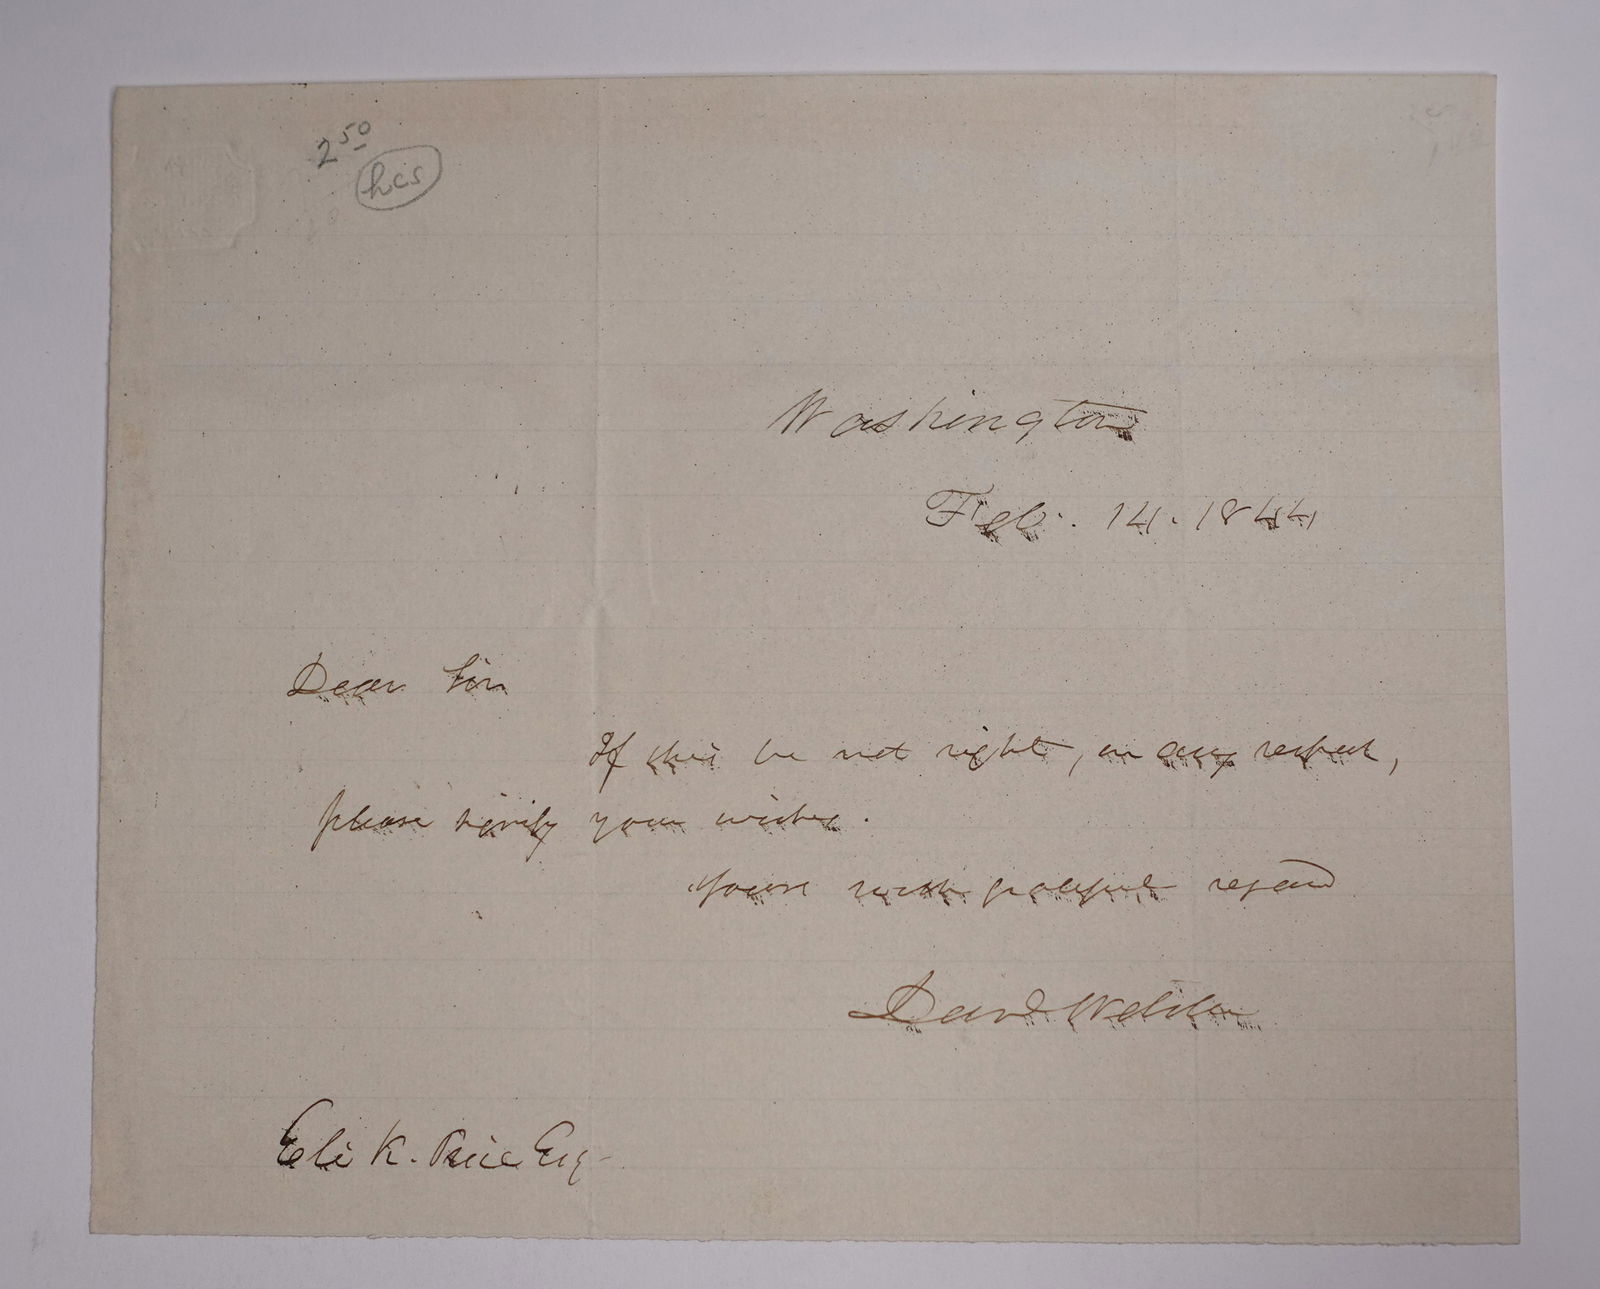 2 50
hcs
Washington
Feb. 14. 1844
Dear Sir
If this be not right, in any respect,
please signify your wishes.
Yours with grateful regard
Danl Webster
Eli K. Price Esq